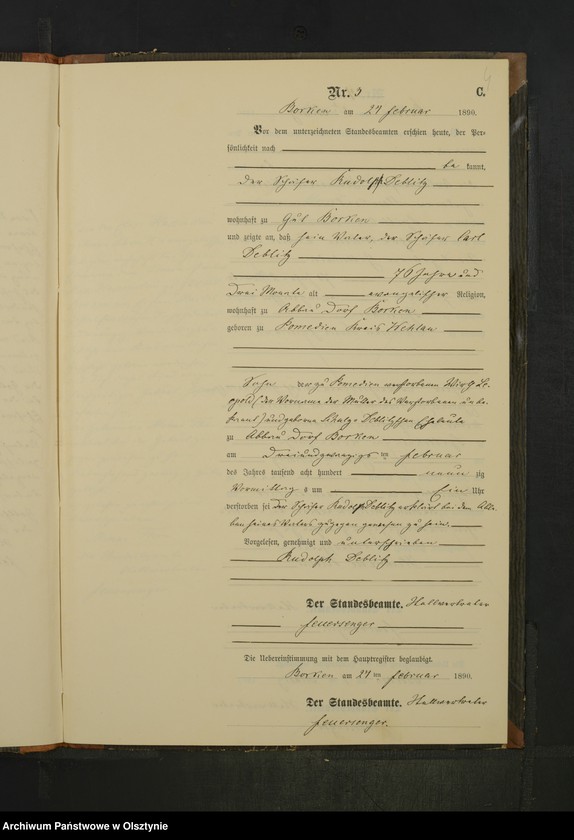 4
Nr. 3 C.
Borken am 27 Februar 1890.
Vor dem unterzeichneten Standesbeamten erschien heute, der Per-
sönlichkeit nach
be kannt,
der Schäfer Rudolph Deblitz
wohnhaft zu Gut Borken
und zeigte an, daß sein Vater, der Schäfer Carl
Deblitz
76 Jahre und
drei Monate alt evangelischer Religion,
wohnhaft zu Abbau Dorf Borken
geboren zu Pomedien Kreis Wehlau
Sohn der zu Pomedien verstorbenen Wirth Le-
opold (der Vorname der Mutter des Verstorbenen unbe-
kannt) und geborne Schulze Deblitzschen Eheleute
zu Abbau Dorf Borken
am dreiundzwanzigs ten Februar
des Jahres tausend acht hundert neun zig
Vormittag s um Ein Uhr
verstorben sei der Schäfer Rudolph Deblitz erklärt bei dem Able-
ben seines Vaters zugegen gewesen zu sein.
Vorgelesen, genehmigt und unterschrieben
Rudolph Deblitz
Der Standesbeamte. Stellvertreter
Feuersenger
Die Uebereinstimmung mit dem Hauptregister beglaubigt.
Borken am 27 ten Februar 1890.
Der Standesbeamte. Stellvertreter
Feuersenger.
Archiwum Państwowe w Olsztynie